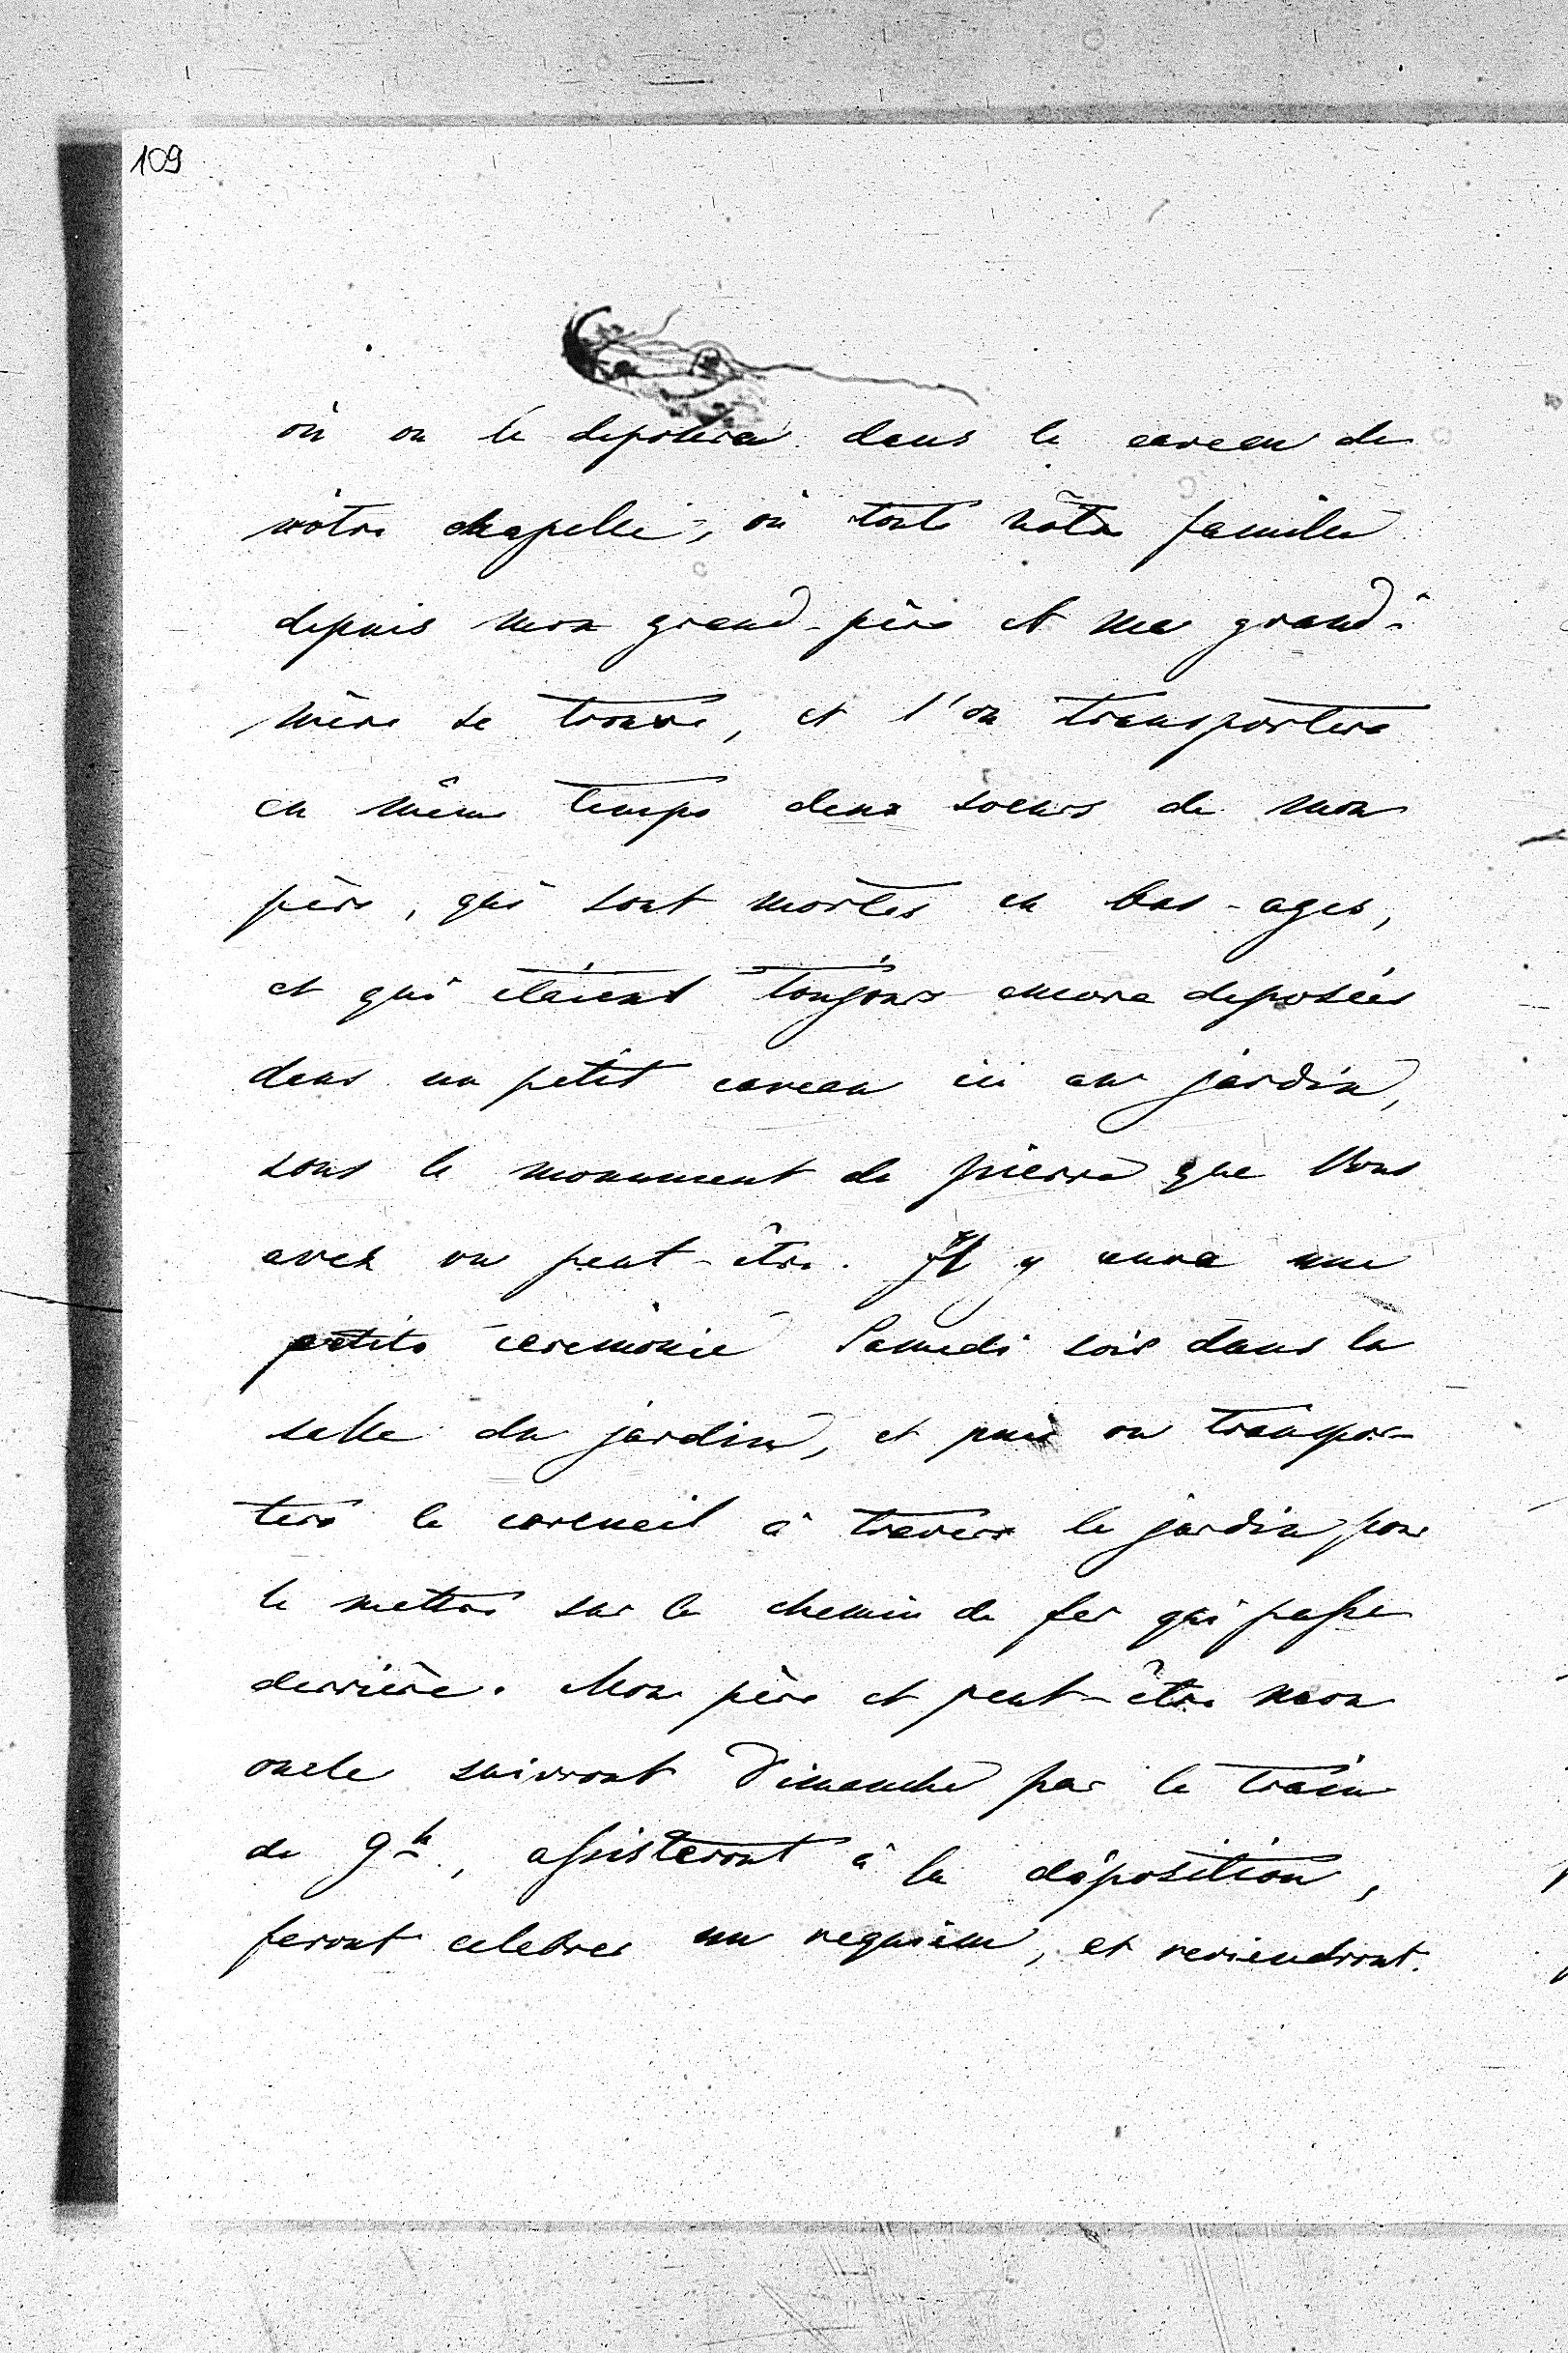 109
où on le deposera dans le caveau de
nôtre chapelle, où toute nôtre famille
depuis mon grand-père et ma grand-
mère se trouve, et l'on transportera
en même temps deux soeurs de mon
père, qui sont mortes en bas-ages,
et qui étaient toujours encore deposées
dans un petit caveau ici au jardin,
sous le monument de pierre que Vous
avez vu peut-être. Il y aura une
petite ceremonie Samedi soir dans la
salle du jardin, et puis on transpor-
tera le cercueil à travers le jardin pour
le mettre sur le chemin de fer qui passe
derrière. Mon père et peut-être mon
oncle suivront Dimanche par le train
de 9h, assisteront à la déposition,
feront celebrer un requiem, et reviendront.